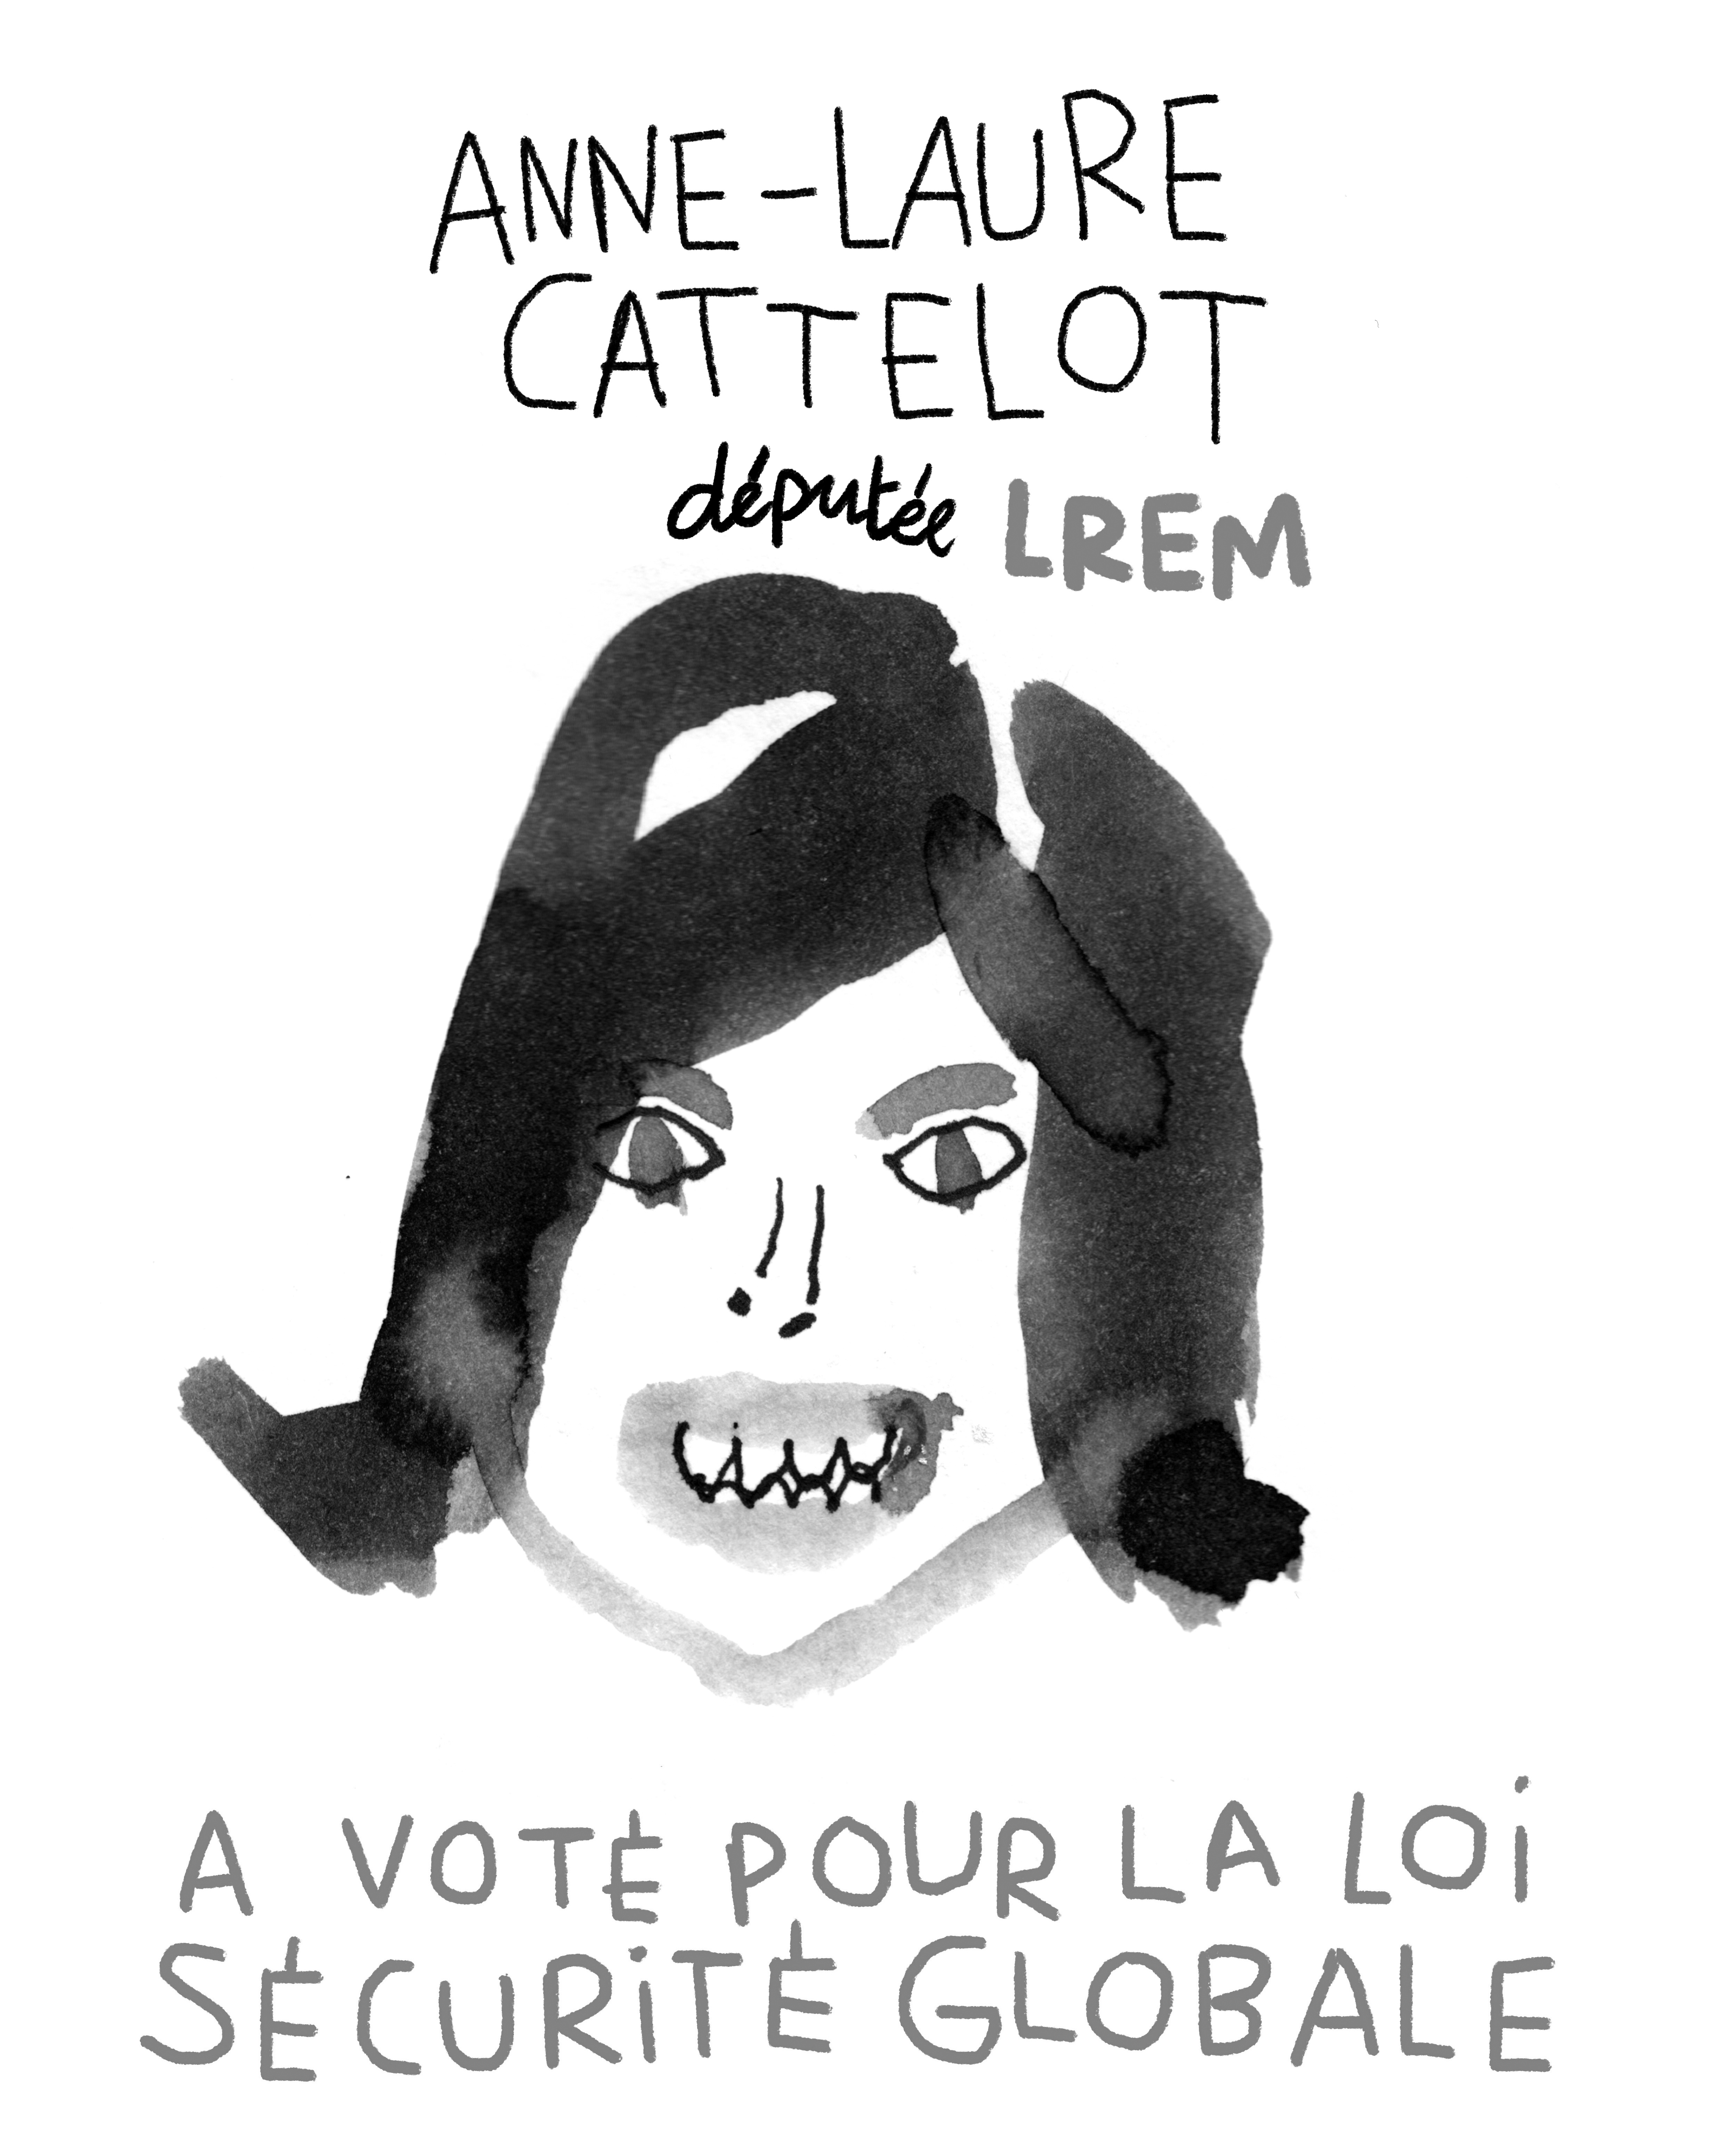 ANNE-LAURE
CATTELOT
députée LREM
A VOTÉ POUR LA LOi
SÉCURiTÉ GLOBALE